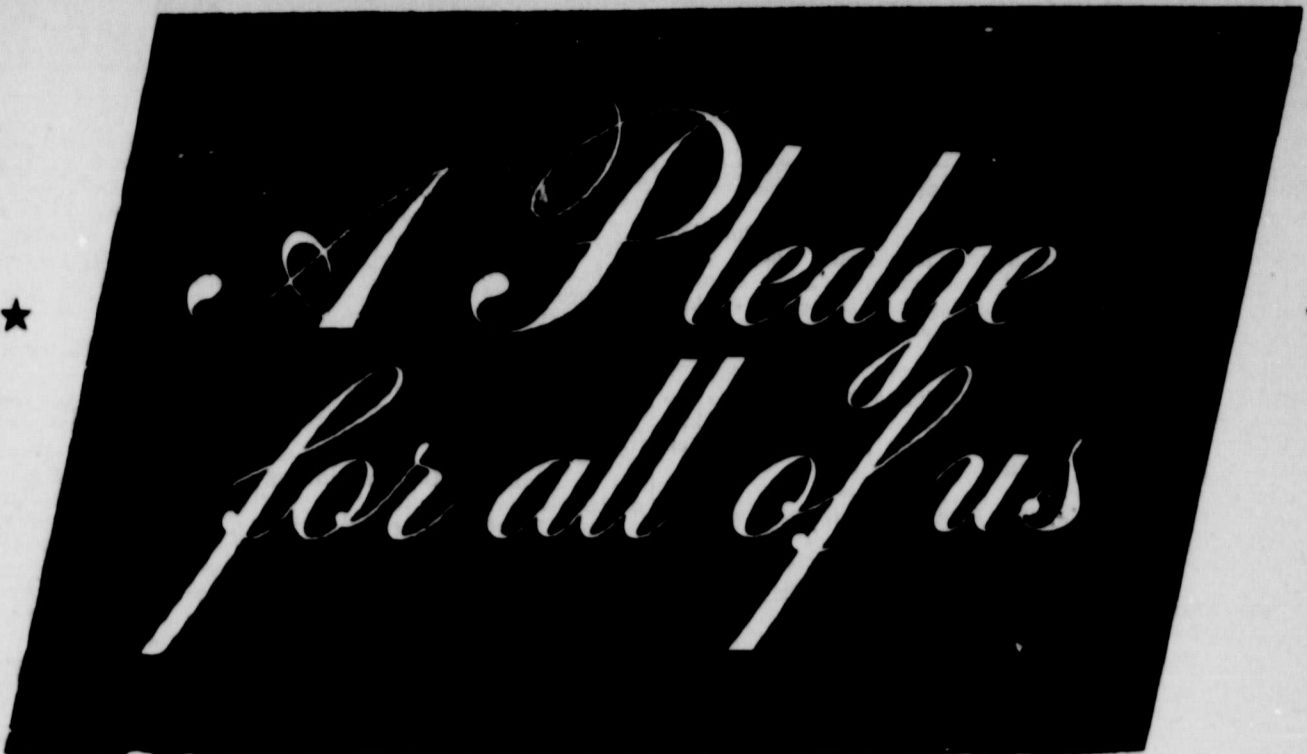 A Pledge
for all of us